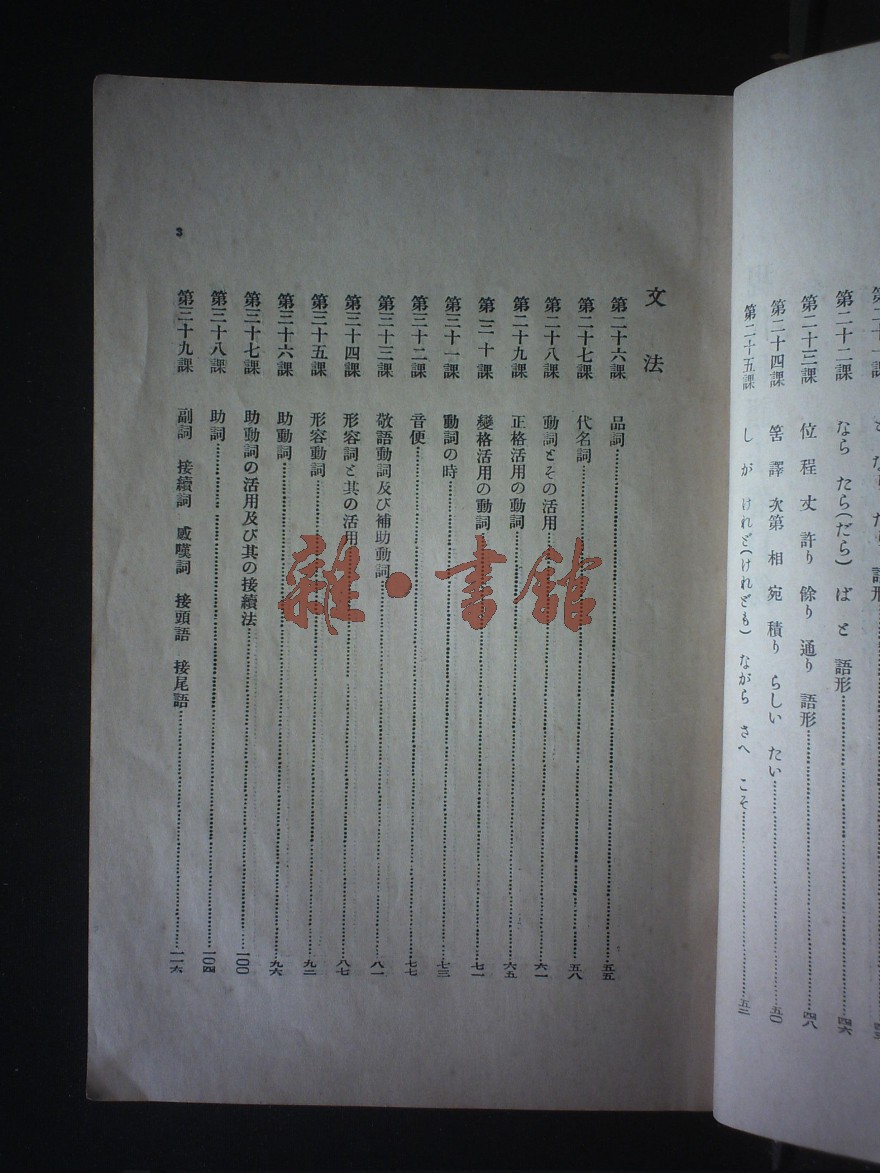 第二十二課 なら たら(だら) ば と 語形……四六
第二十三課 位 程 丈 許り 餘り 通り 語形……四八
第二十四課 筈 譯 次第 相 宛 積り らしい たい……五〇
第二十五課 し が けれど(けれども) ながら さへ こそ……五二
文法
第二十六課 品詞……五五
第二十七課 代名詞……五八
第二十八課 動詞とその活用……六一
第二十九課 正格活用の動詞……六五
第三十課 變格活用の動詞……七一
第三十一課 動詞の時……七三
第三十二課 音便……七七
第三十三課 敬語動詞及び補助動詞……八一
第三十四課 形容詞と其の活用……八七
第三十五課 形容動詞……九二
第三十六課 助動詞……九六
第三十七課 助動詞の活用及び其の接續法……一〇〇
第三十八課 助詞……一〇四
第三十九課 副詞 接續詞 感嘆詞 接頭語 接尾語……一一六
3
雜·書館